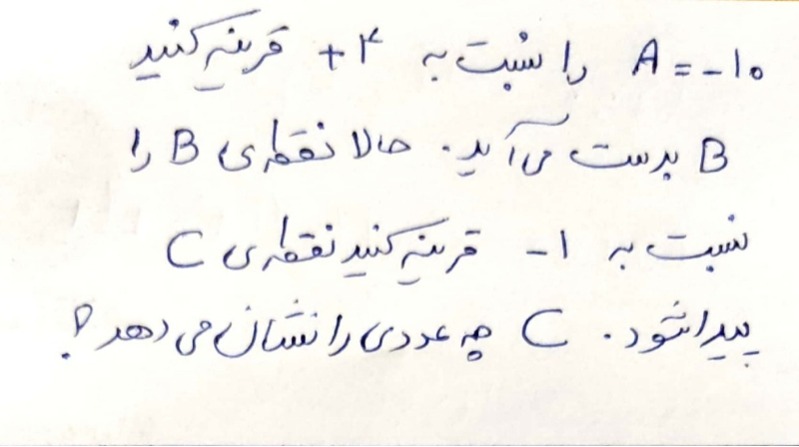 A = -۱۰ را نسبت به +۴ قرینه کنید
B بدست می آید. حالا نقطه ی B را
نسبت به -۱ قرینه کنید نقطه ی C
پیدا شود. C چه عددی را نشان می دهد؟